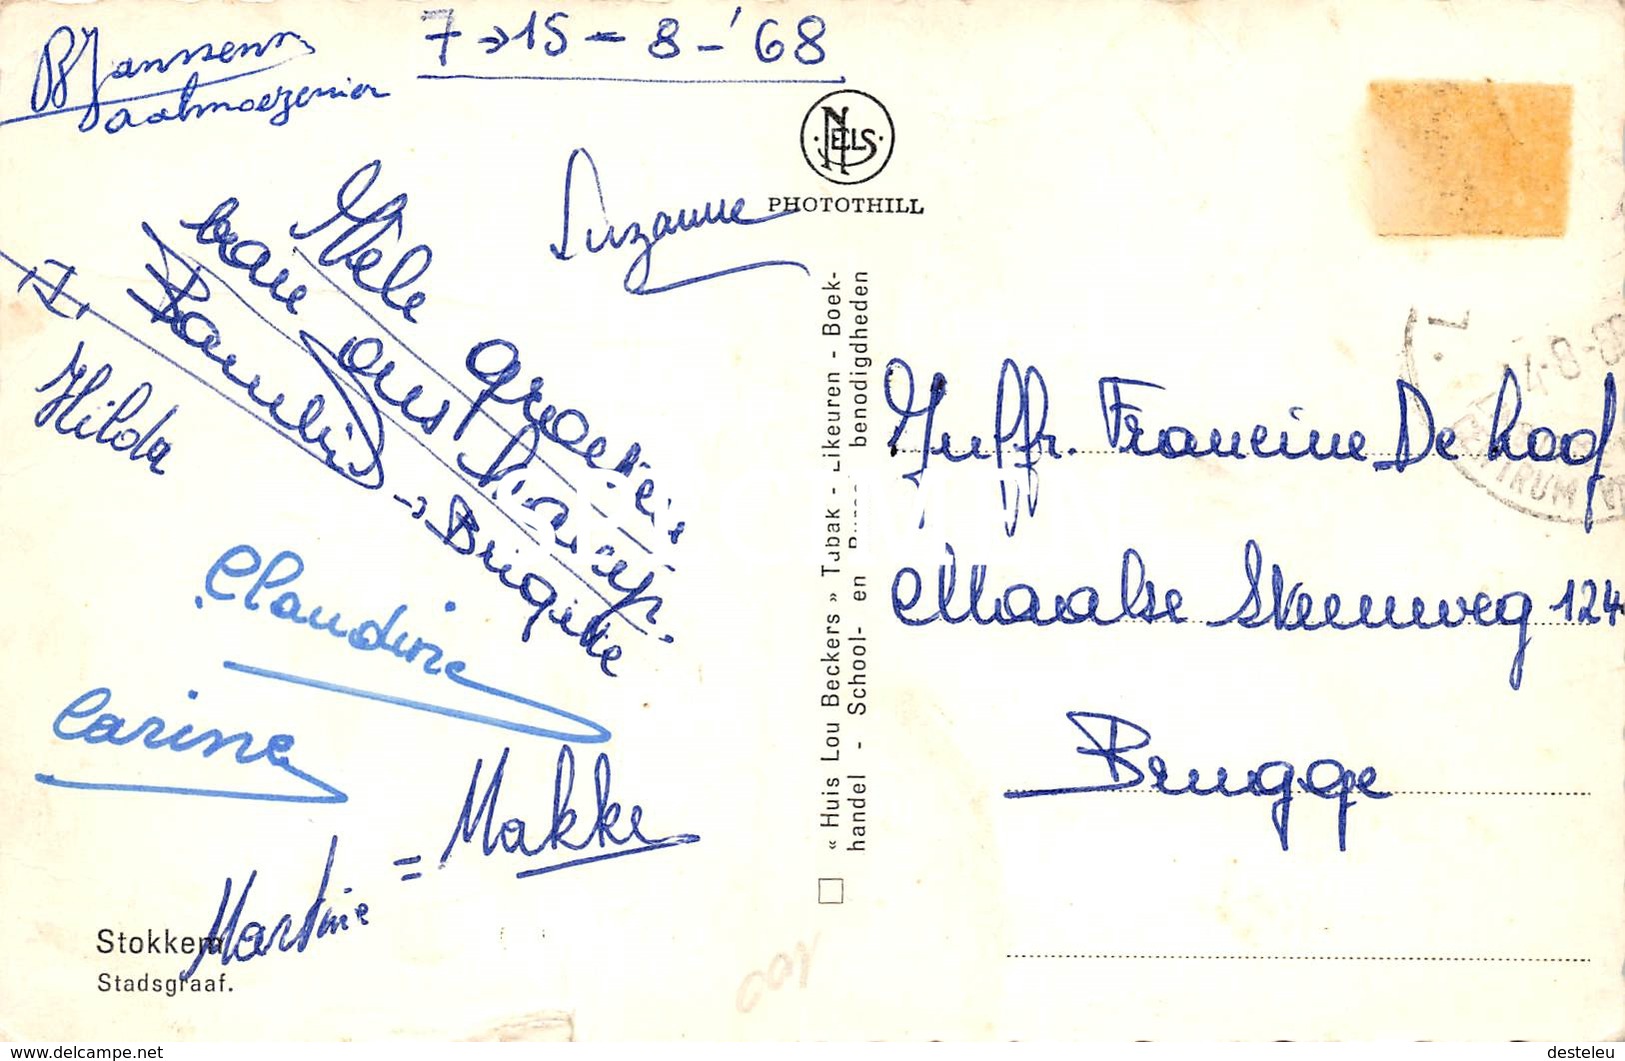 7 → 15 - 8 - '68
B Janssens
aalmoezenier
NELS
PHOTOTHILL
Suzanne
Vele groetjes
van ons
Hilda
→ Brigitte
Claudine
Carine
Martine = Makke
Stokkem
Stadsgraaf.
« Huis Lou Beckers » Tubak - Likeuren - Boek-
handel - School- en benodigdheden
Juffr. Francine De Loof
Maalse Steenweg 124
Brugge
delcampe.net
desteleu